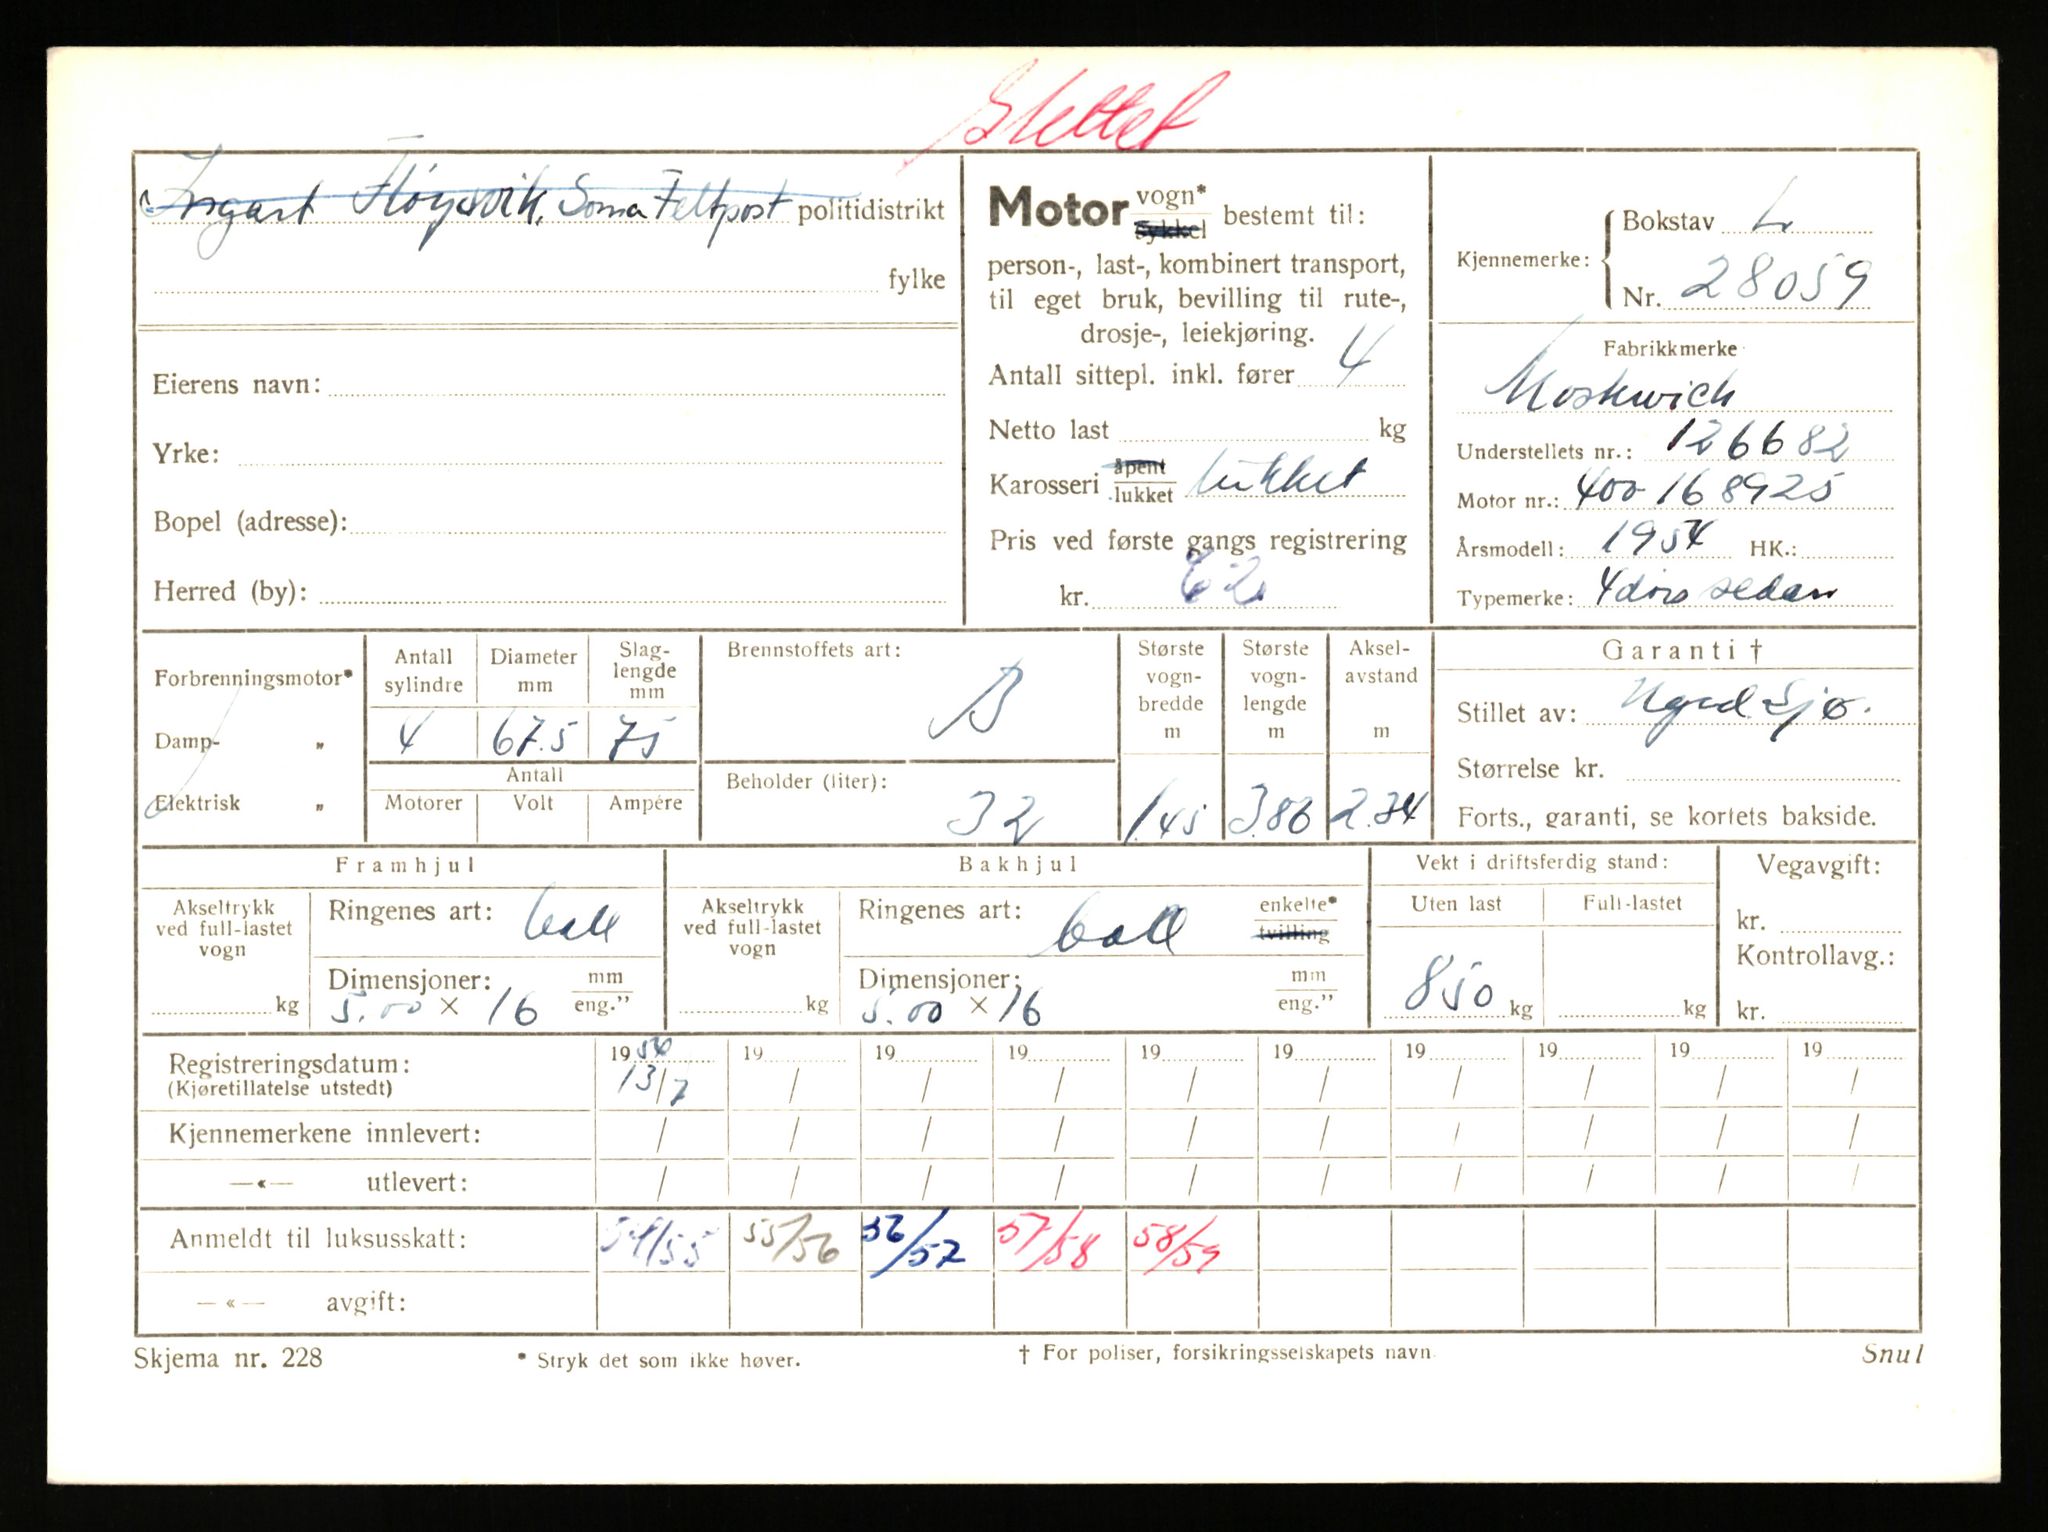 Slettet
Ingart Høysvik, Soma Feltpost politidistrikt
fylke
Eierens navn:
Yrke:
Bopel (adresse):
Herred (by):
Motor vogn* sykkel bestemt til:
person-, last-, kombinert transport,
til eget bruk, bevilling til rute-,
drosje-, leiekjøring.
Antall sittepl. inkl. fører 4
Netto last kg
Karosseri åpent lukket lukket
Pris ved første gangs registrering
kr.
Kjennemerke: Bokstav L
Nr. 28059
Fabrikkmerke
Moskwich
Understellets nr.: 126682
Motor nr.: 400-168925
Årsmodell: 1954 HK.:
Typemerke: 4dørs sedan
Forbrenningsmotor*
Damp- „
Elektrisk „
Antall sylindre Diameter mm Slag-lengde mm
4 67.5 75
Antall
Motorer Volt Ampére
Brennstoffets art: B
Beholder (liter): 32
Største vogn-bredde m 1.45
Største vogn-lengde m 3.86
Aksel-avstand m 2.34
Garanti †
Stillet av: Sjø.
Størrelse kr.
Forts., garanti, se kortets bakside.
Framhjul
Akseltrykk ved full-lastet vogn kg
Ringenes art: ball
Dimensjoner: mm eng."
5.00 × 16
Bakhjul
Akseltrykk ved full-lastet vogn kg
Ringenes art: ball enkelte* tvilling
Dimensjoner: mm eng."
5.00 × 16
Vekt i driftsferdig stand:
Uten last Full-lastet
850 kg kg
Vegavgift:
kr.
Kontrollavg.:
kr.
Registreringsdatum: 1954 19 19 19 19 19 19 19 19 19
(Kjøretillatelse utstedt) 13/7 / / / / / / / / /
Kjennemerkene innlevert: / / / / / / / / / /
—«— utlevert: / / / / / / / / / /
Anmeldt til luksusskatt: 54/55 55/56 56/57 57/58 58/59
—«— avgift:
Skjema nr. 228 * Stryk det som ikke høver. † For poliser, forsikringsselskapets navn Snul